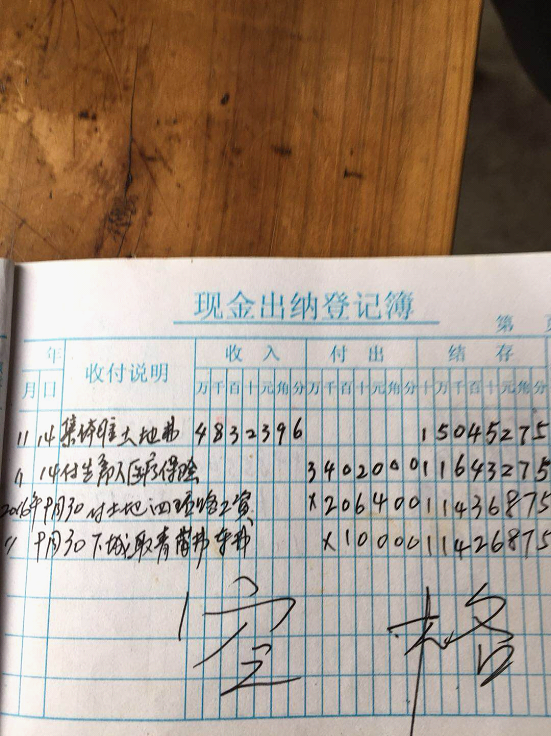 现金出纳登记簿
第 页
年 收付说明 收入 付出 结存
月 日 万千百十元角分 万千百十元角分 十万千百十元角分
11 14 集体 土地费 4832396 15045275
11 14 付生产队医疗保险 3402000 11643275
2016年9月30 付土地 工资 ×206400 11436875
9月30 下城取青苗费车费 ×10000 11426875
空格